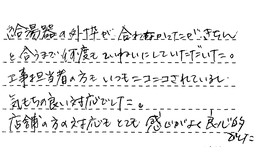 給湯器の外枠が、合わなかったが、きちん
と合うまで何度もていねいにしていただいた。
工事担当者の方もいつもニコニコされていまし
気もちの良い対応でした。
店舗の方の対応もとても感じがよく良心的
でした